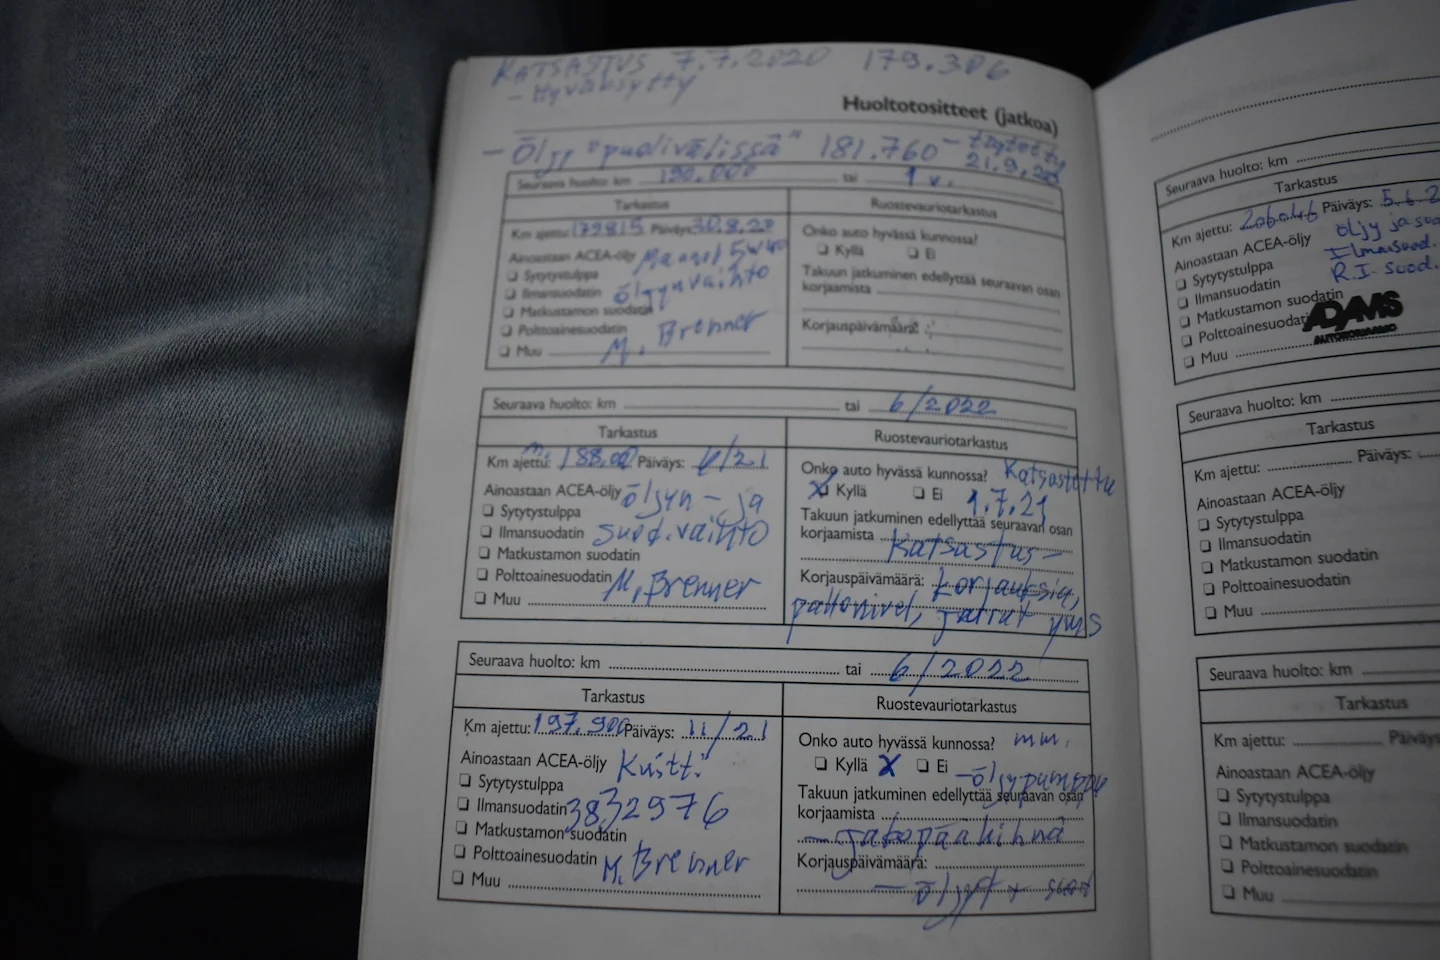 KATSASTUS 7.7.2020 179.306
- Hyväksytty
Huoltotositteet (jatkoa)
- Öljy "puolivälissä" 181.760 - täytetty
21.9.
Seuraava huolto: km 190.000 tai 1 v.
Tarkastus
Ruostevauriotarkastus
Km ajettu: 179815 Päiväys: 30.8.20
Ainoastaan ACEA-öljy Mannol 5W40
❏ Sytytystulppa
❏ Ilmansuodatin öljynvaihto
❏ Matkustamon suodatin
❏ Polttoainesuodatin M. Brenner
❏ Muu
Onko auto hyvässä kunnossa?
❏ Kyllä ❏ Ei
Takuun jatkuminen edellyttää seuraavan osan
korjaamista
Korjauspäivämäärä:
Seuraava huolto: km tai 6/2022
Tarkastus
Ruostevauriotarkastus
Km ajettu: 188.00 Päiväys: 6/21
Ainoastaan ACEA-öljy öljyn- ja
❏ Sytytystulppa
❏ Ilmansuodatin suod.vaihto
❏ Matkustamon suodatin
❏ Polttoainesuodatin M. Brenner
❏ Muu
Onko auto hyvässä kunnossa? Katsastettu
X Kyllä ❏ Ei 1.7.21
Takuun jatkuminen edellyttää seuraavan osan
korjaamista Katsastus-
Korjauspäivämäärä: korjauksia,
pallonivel, jarrut yms
Seuraava huolto: km tai 6/2022
Tarkastus
Ruostevauriotarkastus
Km ajettu: 197.900 Päiväys: 11/21
Ainoastaan ACEA-öljy Kuitt.
❏ Sytytystulppa
❏ Ilmansuodatin 3832976
❏ Matkustamon suodatin
❏ Polttoainesuodatin M. Brenner
❏ Muu
Onko auto hyvässä kunnossa? mm.
❏ Kyllä X ❏ Ei - öljypumppu
Takuun jatkuminen edellyttää seuraavan osan
korjaamista
- jakopäähihna
Korjauspäivämäärä:
- öljyt +
Seuraava huolto: km
Tarkastus
Km ajettu: 206046 Päiväys: 5.6.2
Ainoastaan ACEA-öljy öljy ja suo
❏ Sytytystulppa Ilmansuod.
❏ Ilmansuodatin R.I. suod.
❏ Matkustamon suodatin
❏ Polttoainesuodati ADAMS
AUTOKORJAAMO
❏ Muu
Seuraava huolto: km
Tarkastus
Km ajettu: Päiväys:
Ainoastaan ACEA-öljy
❏ Sytytystulppa
❏ Ilmansuodatin
❏ Matkustamon suodatin
❏ Polttoainesuodatin
❏ Muu
Seuraava huolto: km
Tarkastus
Km ajettu: Päiväys
Ainoastaan ACEA-öljy
❏ Sytytystulppa
❏ Ilmansuodatin
❏ Matkustamon suodatin
❏ Polttoainesuodatin
❏ Muu